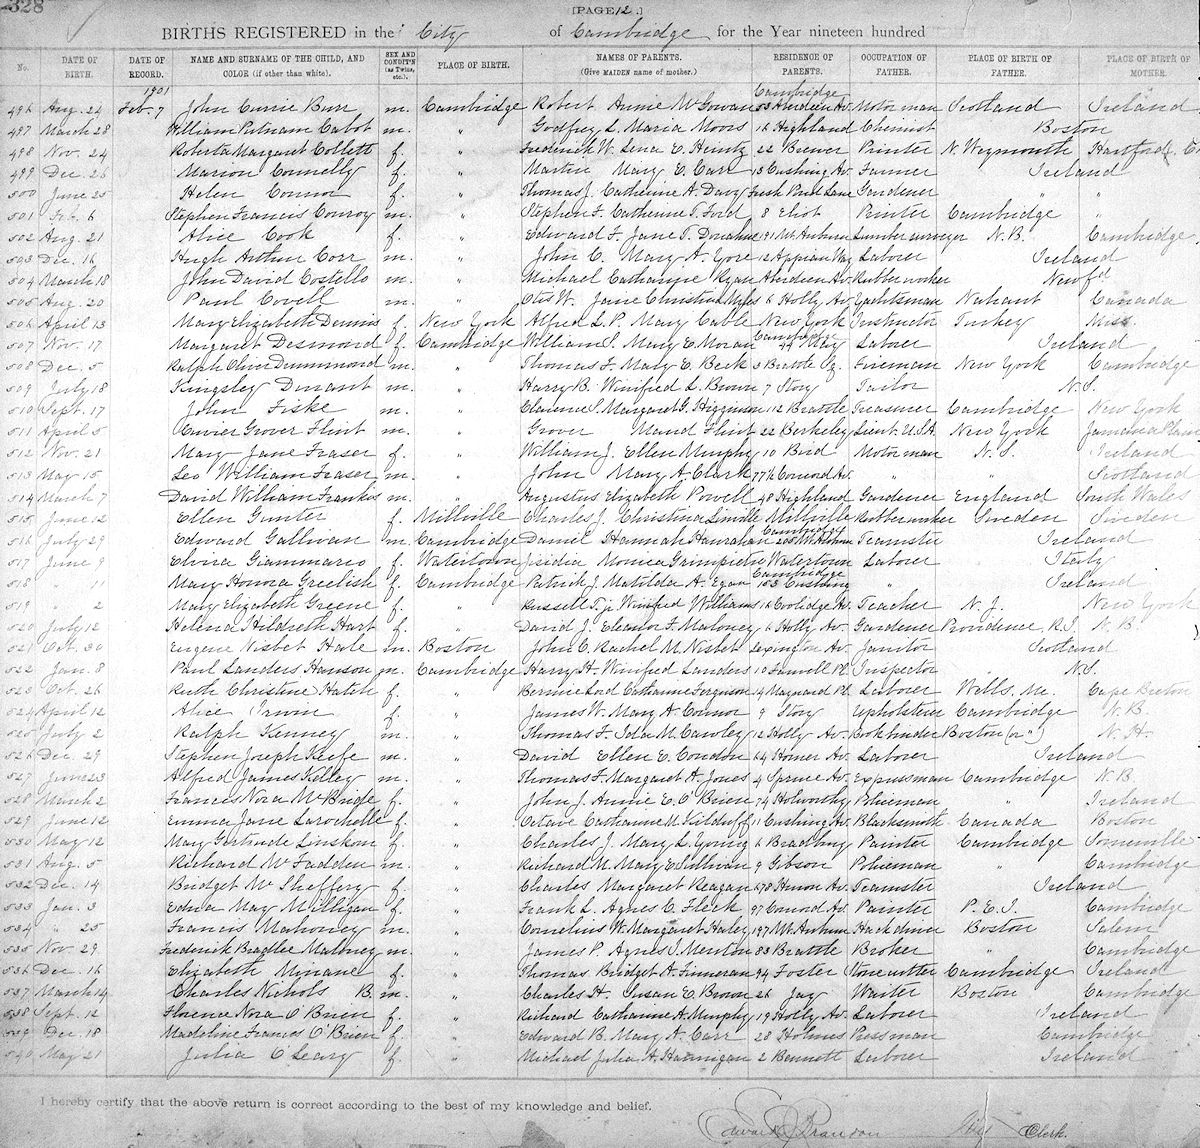 328
[PAGE 12.]
BIRTHS REGISTERED in the City of Cambridge for the Year nineteen hundred
No. DATE OF BIRTH. DATE OF RECORD. NAME AND SURNAME OF THE CHILD, AND COLOR (if other than white). SEX AND CONDIT'N (as Twins, etc.). PLACE OF BIRTH. NAMES OF PARENTS. (Give MAIDEN name of mother.) RESIDENCE OF PARENTS. OCCUPATION OF FATHER. PLACE OF BIRTH OF FATHER. PLACE OF BIRTH OF MOTHER.
1901 Cambridge
496 Aug. 24 Feb. 7 John Currie Burr m. Cambridge Robert Annie McGowan 53 Aberdeen Av. Motorman Scotland Ireland
497 March 28 William Putnam Cabot m. " Godfrey L. Maria Moors 16 Highland Chemist Boston
498 Nov. 24 Roberta Margaret Collett f. " Frederick W. Lena E. Heintz 22 Brewer Printer N. Weymouth Hartford
499 Dec. 26 Marion Connelly f. " Martin Mary E. Carr 13 Cushing Av. Farmer Ireland
500 June 25 Helen Connor f. " Thomas J. Catherine A. Davy Fresh Pond Lane Gardener " "
501 Feb. 6 Stephen Francis Conroy m. " Stephen F. Catherine T. Ford 8 Eliot Printer Cambridge "
502 Aug. 21 Alice Cook f. " Edward F. Jane T. Donahue 191 Mt. Auburn Lumber surveyor N.B. Cambridge
503 Dec. 16 Hugh Arthur Corr m. " John C. Mary A. Gore 12 Appian Way Laborer Ireland
504 March 18 John David Costello m. " Michael Catharine Ryan Aberdeen Av. Rubber worker Newfd
505 Aug. 20 Paul Covell m. " Otis W. Jane Christina 16 Holly Av. Yachtsman Nahant Canada
506 April 13 Mary Elizabeth Dennis f. New York Alfred L. P. Mary Cable New York Instructor Turkey Miss.
507 Nov. 17 Margaret Desmond f. Cambridge William S. Mary E. Moran Cambridge 44 Laborer Ireland
508 Dec. 5 Ralph Clive Drummond m. " Thomas F. Mary E. Beck 5 Brattle Sq. Fireman New York Cambridge
509 July 18 Kingsley Durant m. " Harry B. Winifred L. Brown 7 Story Tailor N.S.
510 Sept. 17 John Fiske m. " Clarence S. Margaret G. Higginson 112 Brattle Treasurer Cambridge New York
511 April 5 Cuvier Grover Flint m. " Grover Maud Flint 22 Berkeley Lieut. U.S.A. New York Jamaica Plain
512 Nov. 21 Mary Jane Fraser f. " William J. Ellen Murphy 10 Bird Motorman N.S. Ireland
513 May 15 Leo William Fraser m. " John Mary A. Clark 77½ Concord Av. " " Scotland
514 March 7 David William Franks m. " Augustus Elizabeth Powell 48 Highland Gardener England South Wales
515 June 12 Ellen Gunter f. Millville Charles J. Christina Linville Millville Rubber worker Sweden Sweden
516 July 29 Edward Gallivan m. Cambridge Daniel Hannah Hanrahan Cambridge 205 Mt. Auburn Teamster Ireland
517 June 9 Elvira Giammario f. Watertown Monica Watertown Laborer Italy
518 " 1 Mary Honora Greelish f. Cambridge Patrick J. Matilda A. Egan Cambridge 153 Cushing " Ireland
519 " 2 Mary Elizabeth Greene f. " Russell T. jr Winifred Williams 12 Coolidge Av. Teacher N.J. New York
520 July 12 Helena Hildreth Hart f. " David J. Eleanor F. Maloney 6 Holly Av. Gardener Providence R.I. N.B.
521 Oct. 30 Eugene Nisbet Hale m. Boston John C. Rachel M. Nisbet Lexington Av. Janitor Scotland
522 Jan. 8 Paul Landers Hanson m. Cambridge Harry H. Winifred Landers 10 Farwell Pl. Inspector N.S.
523 Oct. 26 Ruth Christine Hatch f. " Bernie Lord Catharine Ferguson 14 Maynard Pl. Laborer Wells. Me. Cape Breton
524 April 12 Alice Irwin f. " James W. Mary A. Connor 9 Story Upholsterer Cambridge N.B.
525 July 2 Ralph Kenney m. " Thomas F. Ida M. Cawley 12 Holly Av. Bookbinder Boston (or ") N.H.
526 Dec. 29 Stephen Joseph Keefe m. " David Ellen E. Condon 64 Homer Av. Laborer Ireland
527 June 23 Alfred James Kelley m. " Thomas F. Margaret A. Jones 4 Spruce Av. Expressman Cambridge N.B.
528 March 2 Frances Nora McBride f. " John J. Annie E. O'Brien 74 Holworthy Policeman " Ireland
529 June 12 Emma Jane Larochelle f. " Octave Catharine M. Kilduff 11 Cushing Av. Blacksmith Canada Boston
530 May 12 Mary Gertrude Linskom f. " Charles J. Mary L. Young 6 Bradbury Painter Cambridge Somerville
531 Aug. 5 Richard McFadden m. " Richard M. Mary E. Sullivan 9 Gibson Policeman " Cambridge
532 Dec. 14 Bridget McSheffery f. " Charles Margaret Reagan 178 Huron Av. Teamster Ireland
533 Jan. 3 Edna May Milligan f. " Frank L. Agnes C. Fleck 97 Concord Av. Painter P.E.I. Cambridge
534 " 25 Francis Mahoney m. " Cornelius W. Margaret Haley 197 Mt. Auburn Hack driver Boston Salem
535 Nov. 29 Frederick Bradlee Maloney m. " James P. Agnes I. Menton 83 Brattle Broker " Cambridge
536 Dec. 16 Elizabeth Mynane f. " Thomas Bridget A. Finneran 94 Foster Stone cutter Cambridge Ireland
537 March 14 Charles Nichols B. m. " Charles H. Susan E. Brown 26 Jay Waiter Boston Cambridge
538 Sept. 12 Florence Nora O'Brien f. " Richard Catharine A. Murphy 19 Holly Av. Laborer Ireland
539 Dec. 18 Madeline Frances O'Brien f. " Edward B. Mary A. Carr 28 Holmes Pressman Cambridge
540 May 21 Julia O'Leary f. " Michael Julia A. Hannigan 2 Bennett Laborer Ireland
I hereby certify that the above return is correct according to the best of my knowledge and belief.
Edward J. Brandon City Clerk.